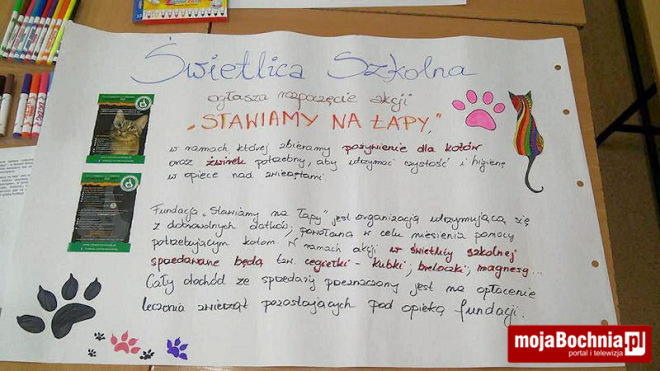 Świetlica Szkolna
ogłasza rozpoczęcie akcji
„STAWIAMY NA ŁAPY”,
w ramach której zbieramy pożywienie dla kotów
oraz żwirek potrzebny, aby utrzymać czystość i higienę
w opiece nad zwierzętami.
Fundacja „Stawiamy na Łapy” jest organizacją utrzymującą się
z dobrowolnych datków, powołaną w celu niesienia pomocy
potrzebującym kotom. W ramach akcji w świetlicy szkolnej
sprzedawane będą tzw. cegiełki - kubki, breloczki, magnesy...
Cały dochód ze sprzedaży przeznaczony jest na opłacenie
leczenia zwierząt pozostających pod opieką fundacji.
mojaBochnia.pl
portal i telewizja